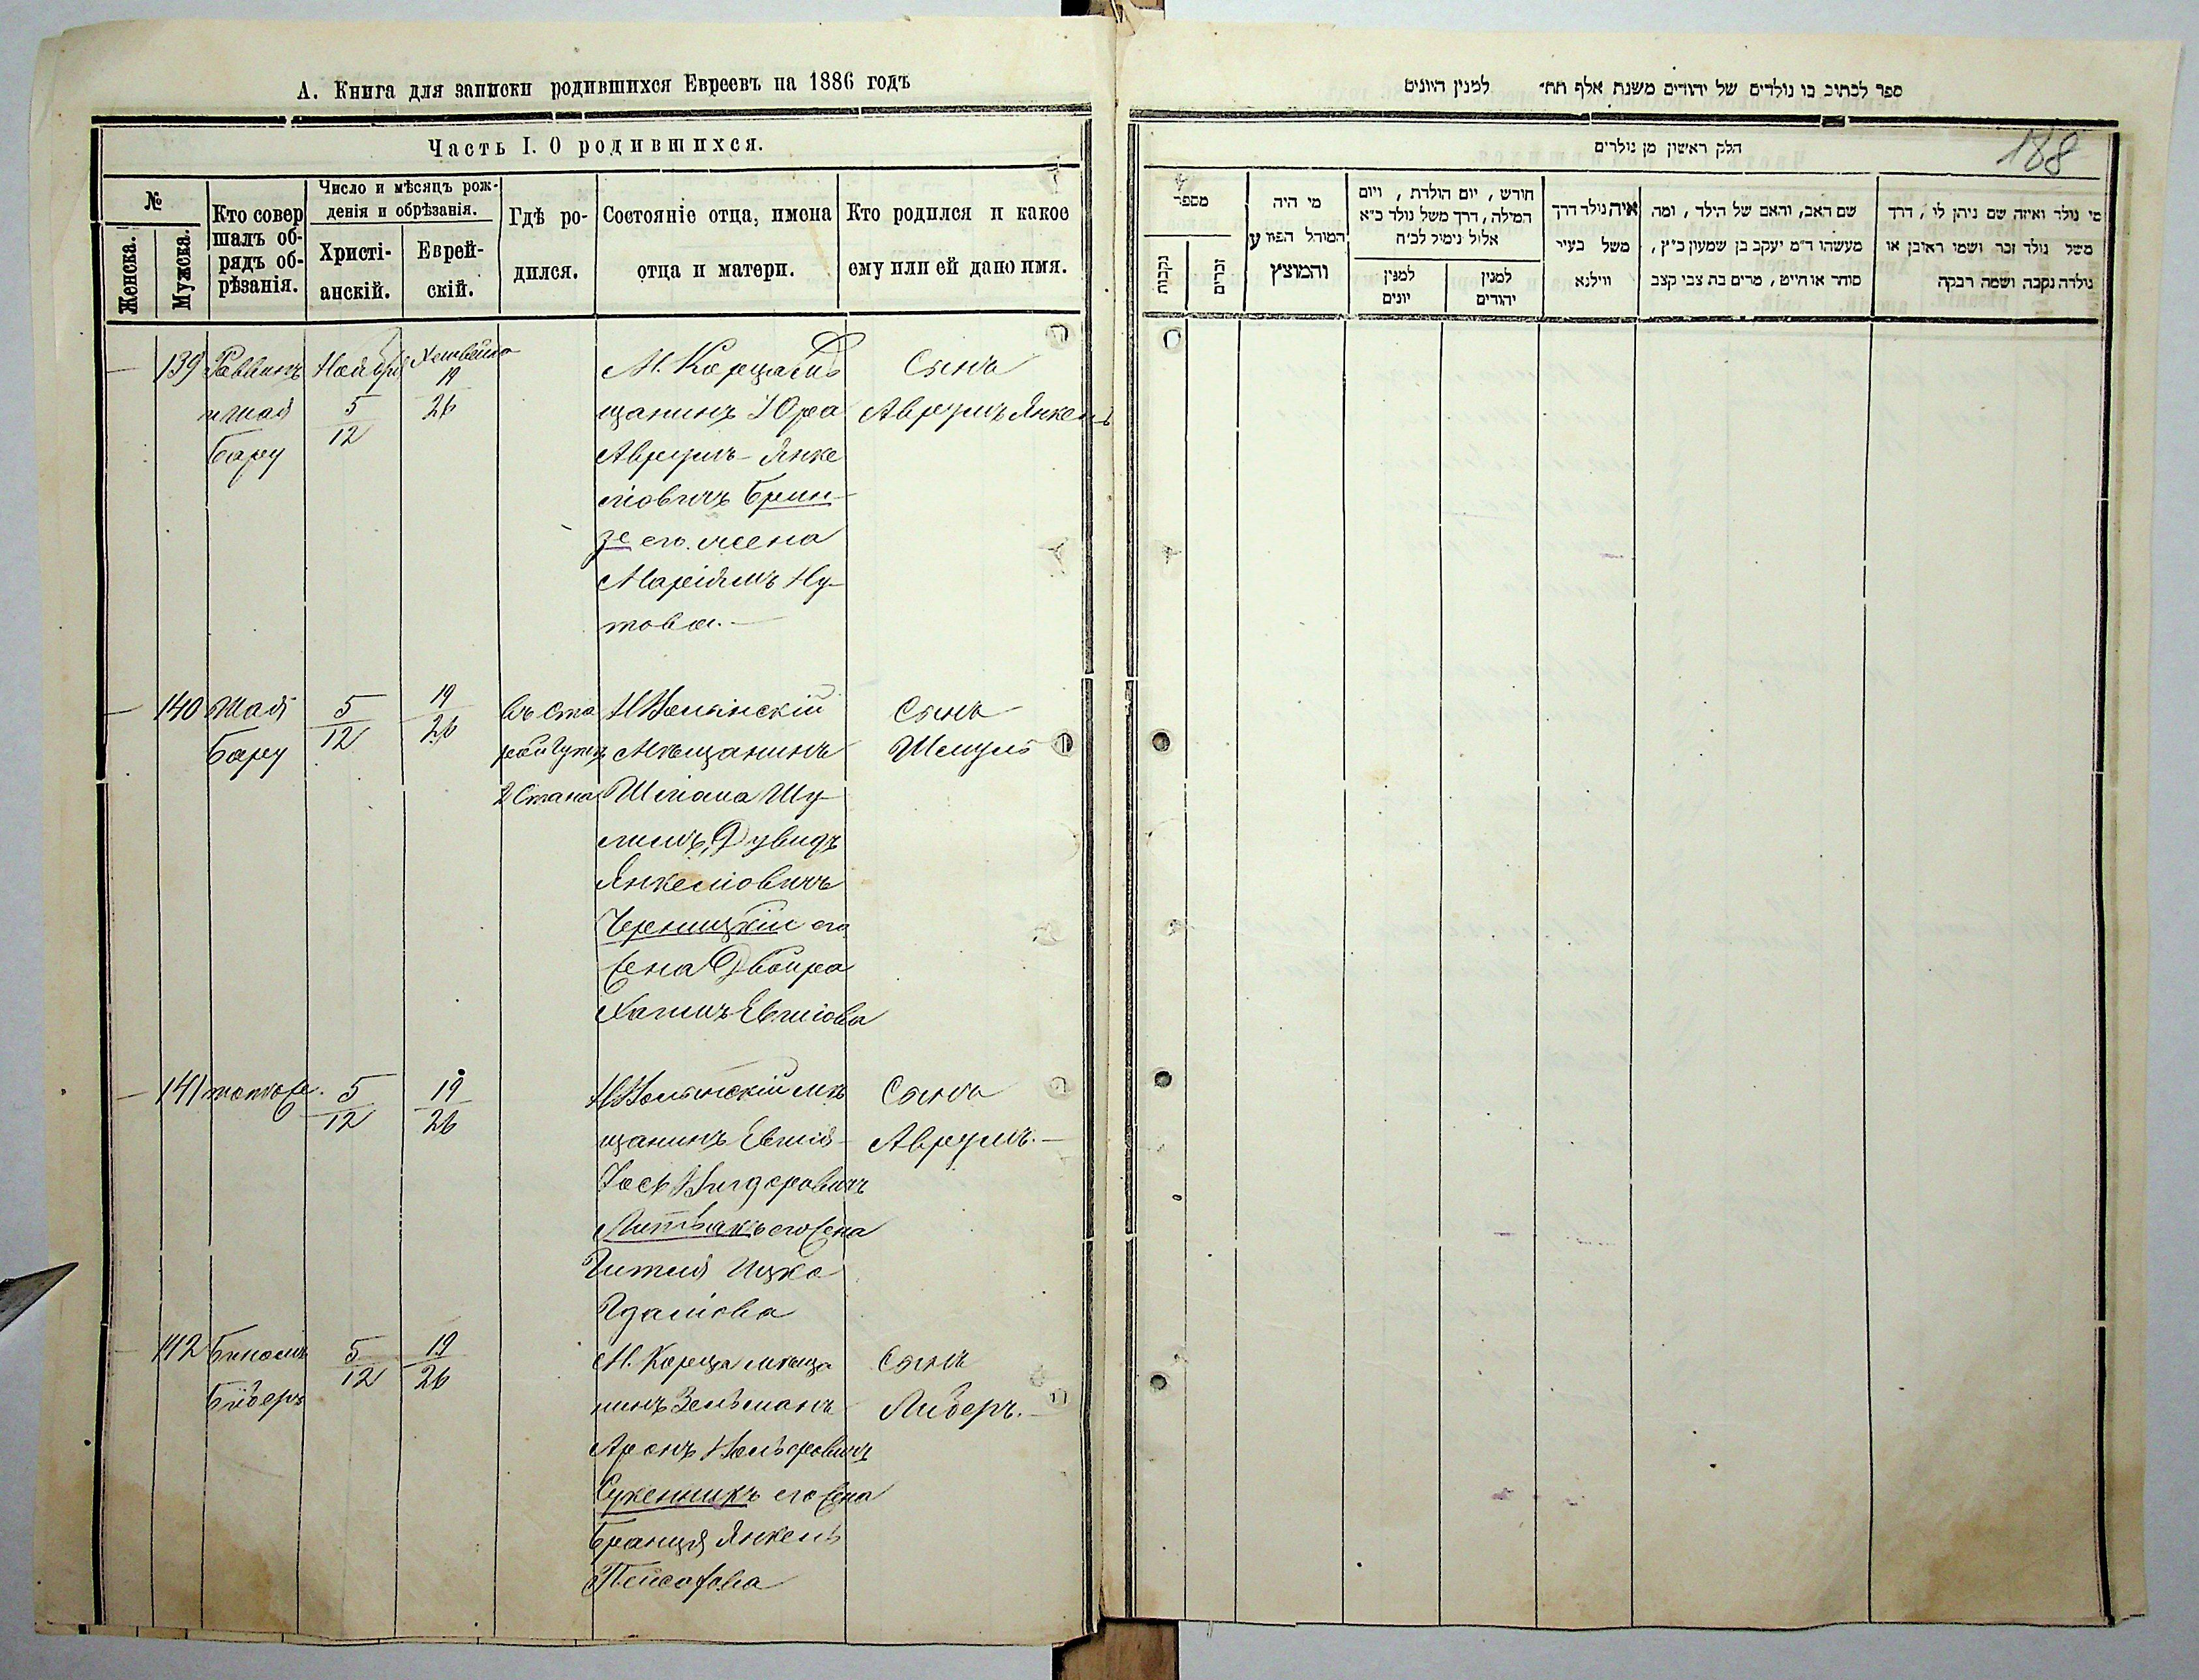 А. Книга для записки родившихся Евреевъ на 1886 годъ
Часть I. О родившихся.
№
Женска.
Мужска.
Кто совер
шалъ об-
рядъ об-
рѣзанія.
Число и мѣсяцъ рож-
денія и обрѣзанія.
Христі-
анскій.
Еврей-
скій.
Гдѣ ро-
дился.
Состояніе отца, имена
отца и матери.
Кто родился и какое
ему или ей дано имя.
139
Раввинъ
Бару
Ноября
5
12
19
26
М. Корца
щанинъ Юра
Аврумъ-Янке
ліовичъ Брин-
зе его жена
Маріямъ Ну-
това.
Сынъ
Аврумъ Янкель
140
Шая
Бару
5
12
19
26
въ Ста
2 Стана
мѣщанинъ
Шліома Шу-
лимъ, Дувидъ
Янкеліовичъ
Черницкій его
жена Двойра
Хаимъ Евліова
Сынъ
Шмуль
141
тотже.
5
12
19
26
щанинъ
Литвакъ его жена
Гитля Ицко
Гдаліова
Сынъ
Аврумъ.
142
5
12
19
26
М. Корца мѣща
нинъ Зельманъ
Аронъ
Сукенникъ его жена
Бранця Янкель
Пейсахова
Сынъ
Либеръ.
ספר לכתוב בו נולדים של יהודים משנת אלף תת״ למנין היונים
188
חלק ראשון מן נולדים
מספר
נקבות
זכרים
מי היה
המוהל הפורע
והמוצץ
חורש, יום הולדת, ויום
המילה, דרך משל נולד כ״א
אלול נימול לכ״ח
למנין
יונים
למנין
יהודים
איה נולד דרך
משל בעיר
ווילנא
שם האב, והאם של הילד, ומה
מעשהו ד״מ יעקב בן שמעון כ״ץ,
סוחר או חייט, מרים בת צבי קצב
מי נולד ואיזה שם ניתן לו, דרך
משל נולד זכר ושמו ראובן או
נולדה נקבה ושמה רבקה